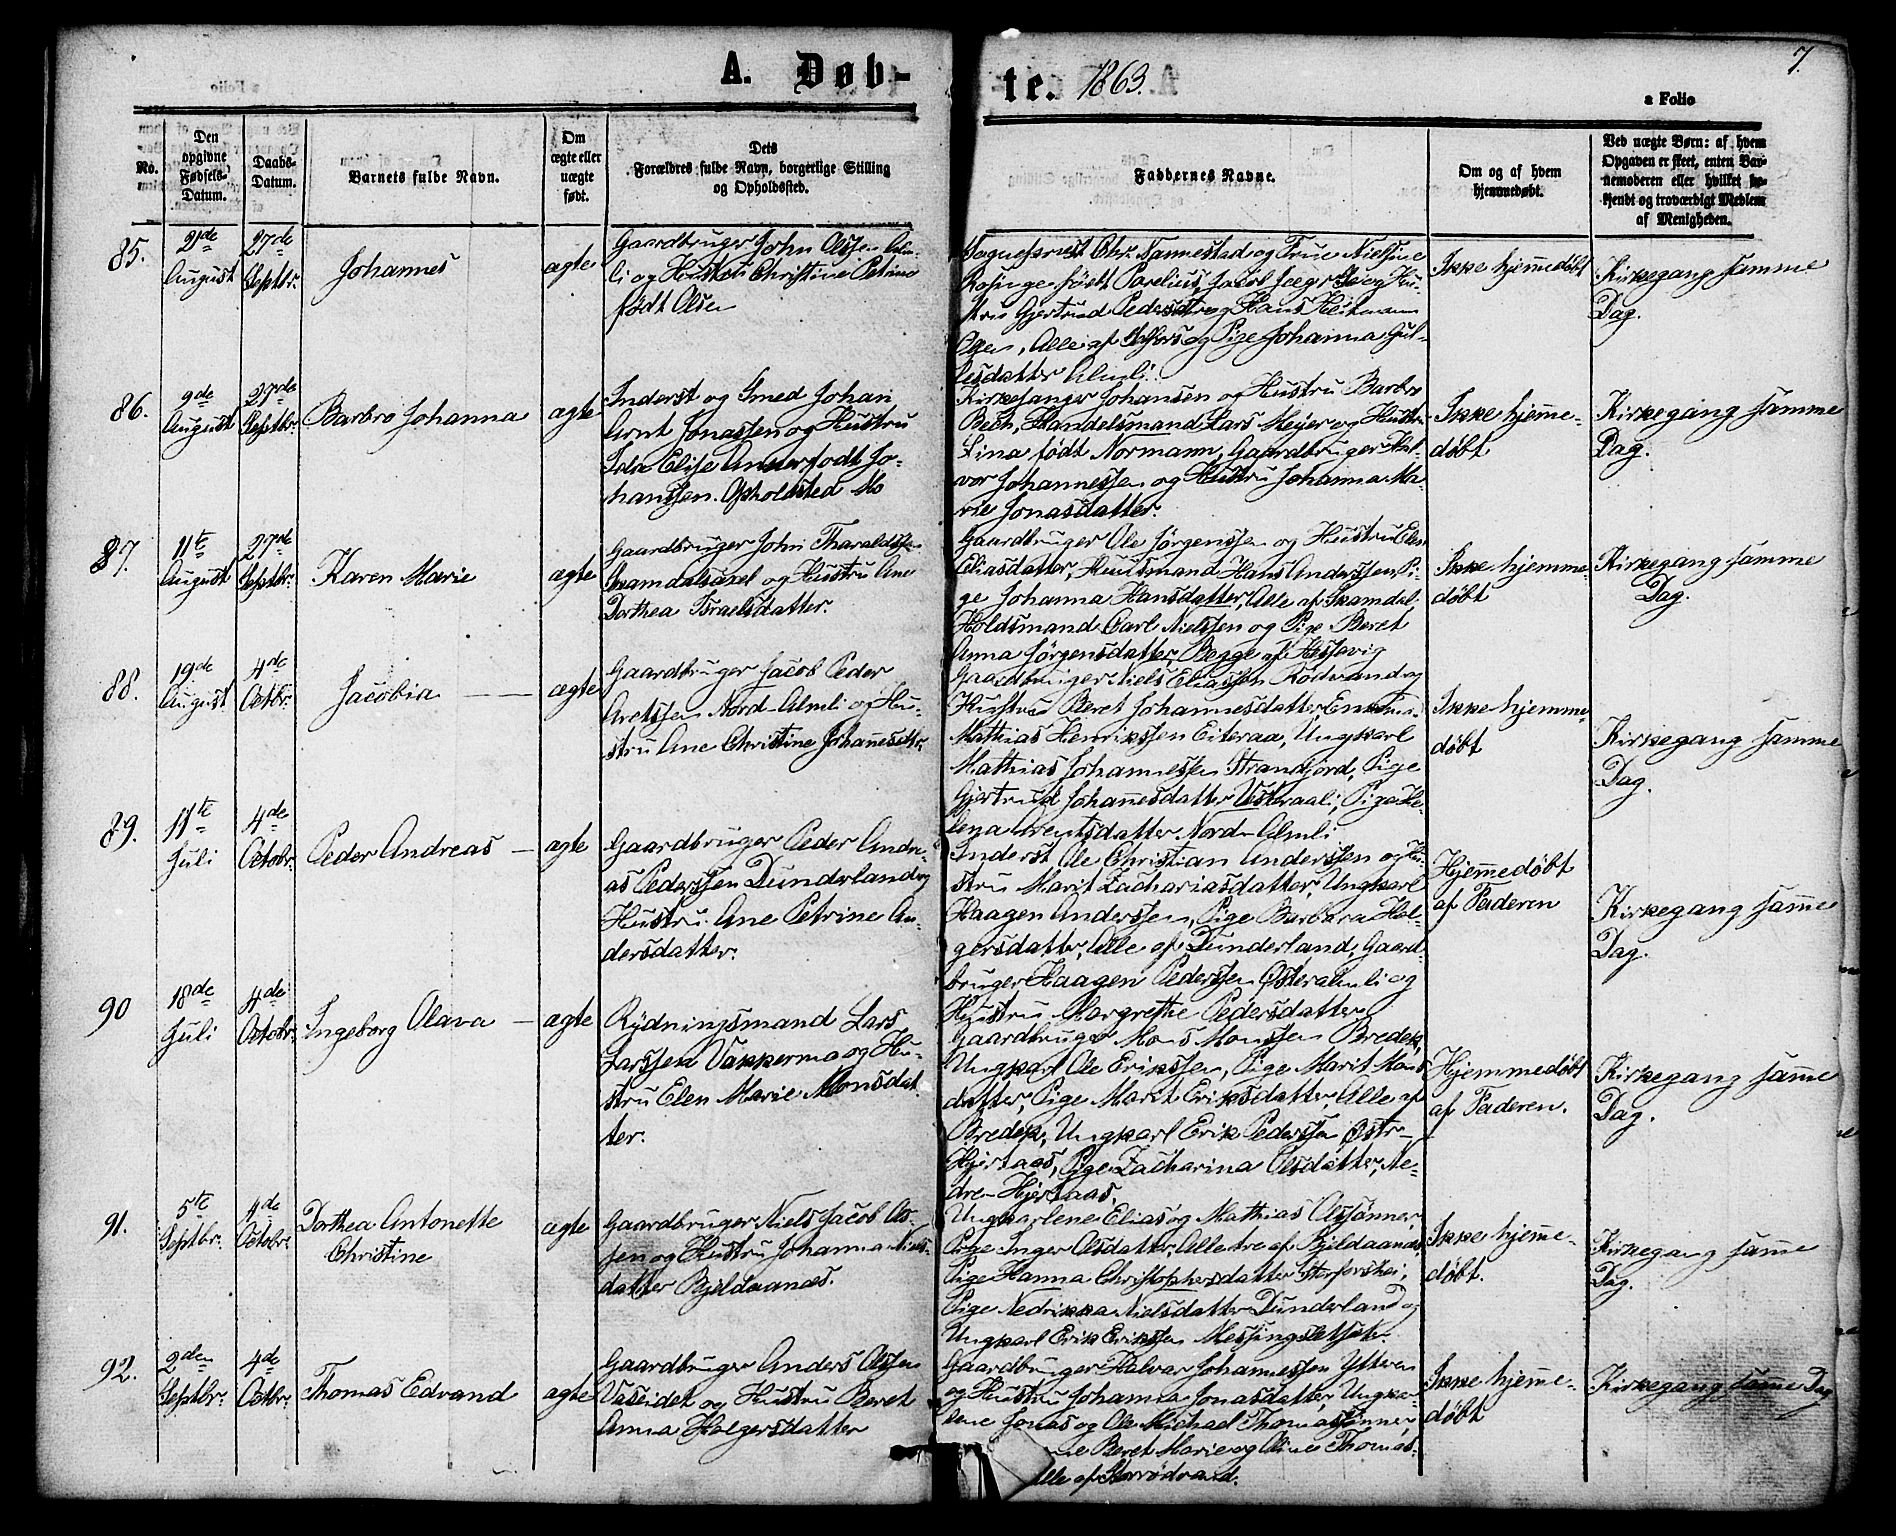 7.
A. Døb-
te. 1863.
a Folio
No.
Den
opgivne
Fødsels-
Datum.
Daabs-
Datum.
Barnets fulde Navn.
Om
ægte eller
uægte
født.
Dets
Forældres fulde Navn, borgerlige Stilling
og Opholdssted.
Faddernes Navne.
Om og af hvem
hjemmedøbt.
Ved uægte Børn: af hvem
Opgaven er skeet, enten Bar-
nemoderen eller hvilket be-
kjendt og troværdigt Medlem
af Menigheden.
85.
21de
August
27de
Septbr.
Johannes
ægte
Gaardbruger John Olssen Alm-
li og Hustru Christine Petrine
født Olsen
Sognepræst Chr. Nannestad og Frue Nielsine
Rosinge født Parelius, Jacob Jæger og Hu-
stru Gjertrud Pedersdtr og Hans Heitmann
Olsen, Alle af og Pige Johanna Jul-
lisdatter Almli.
Ikke hjemmedøbt
Kirkegang samme
Dag.
86.
9de
August
27de
Septbr.
Barbro Johanna
ægte
Inderst og Smed Johan
Arnt Jonassen og Hustru
Ida Elise Anster født Jo-
hanssen. Opholdsted Mo
Kirkesanger Johansen og Hustru Barbro
Bech, Handelsmand Lars Meyer og Hustru
Lina født Normann, Gaardbruger Hal-
vor Johannessen og Hustru Johanna Ma-
rie Jonasdatter.
Ikke hjemme-
døbt
Kirkegang samme
Dag.
87.
11te
August
27de
Septbr.
Karen Marie
ægte
Gaardbruger John Tharaldssen
Skamdalsaxel og Hustru Ane
Dorthea Israelsdatter.
Gaardbruger Ole Jørgenssen og Hustru Elen
Eliasdatter, Huusmand Hans Anderssen, Pi-
ge Johanna Hansdatter, Alle af Skamdal.
Holdsmand Carl Nielssen og Pige Beret
Anna Jørgensdatter, Begge af Hessavig
Ikke hjemme-
døbt
Kirkegang samme
Dag.
88.
19de
August
4de
Octbr.
Jacobia
ægte
Gaardbruger Jacob Peder
Arntssen Nord-Almli og Hu-
stru Ane Christine Johannesdtr.
Gaardbruger Niels Eliassen Rodvand og
Hustru Beret Johannesdatter,
Mathias Henrikssen Eiteraa, Ungkarl
Mathias Johannessen Strandjord, Pige
Gjertrud Johannesdatter Utteraali, Pige He-
lena Arentsdatter Nord-Almli
Ikke hjemme-
døbt
Kirkegang samme
Dag.
89.
11te
Juli
4de
Octobr.
Peder Andreas
ægte
Gaardbruger Peder Andre-
as Pederssen Dunderland og
Hustru Ane Petrine An-
dersdatter.
Inderst Ole Christian Anderssen og Hu-
stru Marit Zachariasdatter, Ungkarl
Haagen Anderssen, Pige Barbara Hol-
gersdatter, Alle af Dunderland, Gaard-
bruger Haagen Pederssen Østeralmli og
Hustru Margrethe Pedersdatter
Hjemmedøbt
af Faderen
Kirkegang samme
Dag.
90
18de
Juli
4de
Octobr.
Ingeborg Olava
ægte
Rydningsmand Lars
Larssen Vakkermo og Hu-
stru Elen Marie Monsdat-
ter.
Gaardbruger Mons Monssen Bredek,
Ungkarl Ole Erikssen, Pige Marit Mons-
datter, Pige Marit Eriksdatter, Alle af
Bredek, Ungkarl Erik Pederssen Østre-
Hjertaas, Pige Zacharina Olsdatter, Ne-
dre-Hjertaas.
Hjemmedøbt
af Faderen.
Kirkegang samme
Dag.
91.
5te
Septbr.
4de
Octobr.
Dorthea Antonette
Christine
ægte
Gaardbruger Niels Jacob Ols-
sen og Hustru Johanna Niels-
datter Bjeldaanes.
Ungkarlene Elias og Mathias Olssønner,
Pige Inger Olsdatter, Alle tre af Bjeldaanes,
Pige Hanna Christophersdatter Storforshei,
Pige Nedrikka Nielsdatter Dunderland og
Ungkarl Erik Erikssen Messingsletten.
Ikke hjemme-
døbt.
Kirkegang samme
Dag.
92.
2den
Septbr.
4de
Octbr.
Thomas Edvand
ægte
Gaardbruger Anders Olssen
Vaseidet og Hustru Beret
Anna Holgersdatter
Gaardbruger Halvar Johannessen Ytteren
og Hustru Johanna Jonasdatter, Ungka-
lene Jonas og Ole Michael Thomassønner,
ne Beret Marie og Oline Thomas-
lle af
Ikke hjemme-
døbt
Kirkegang samme Dag